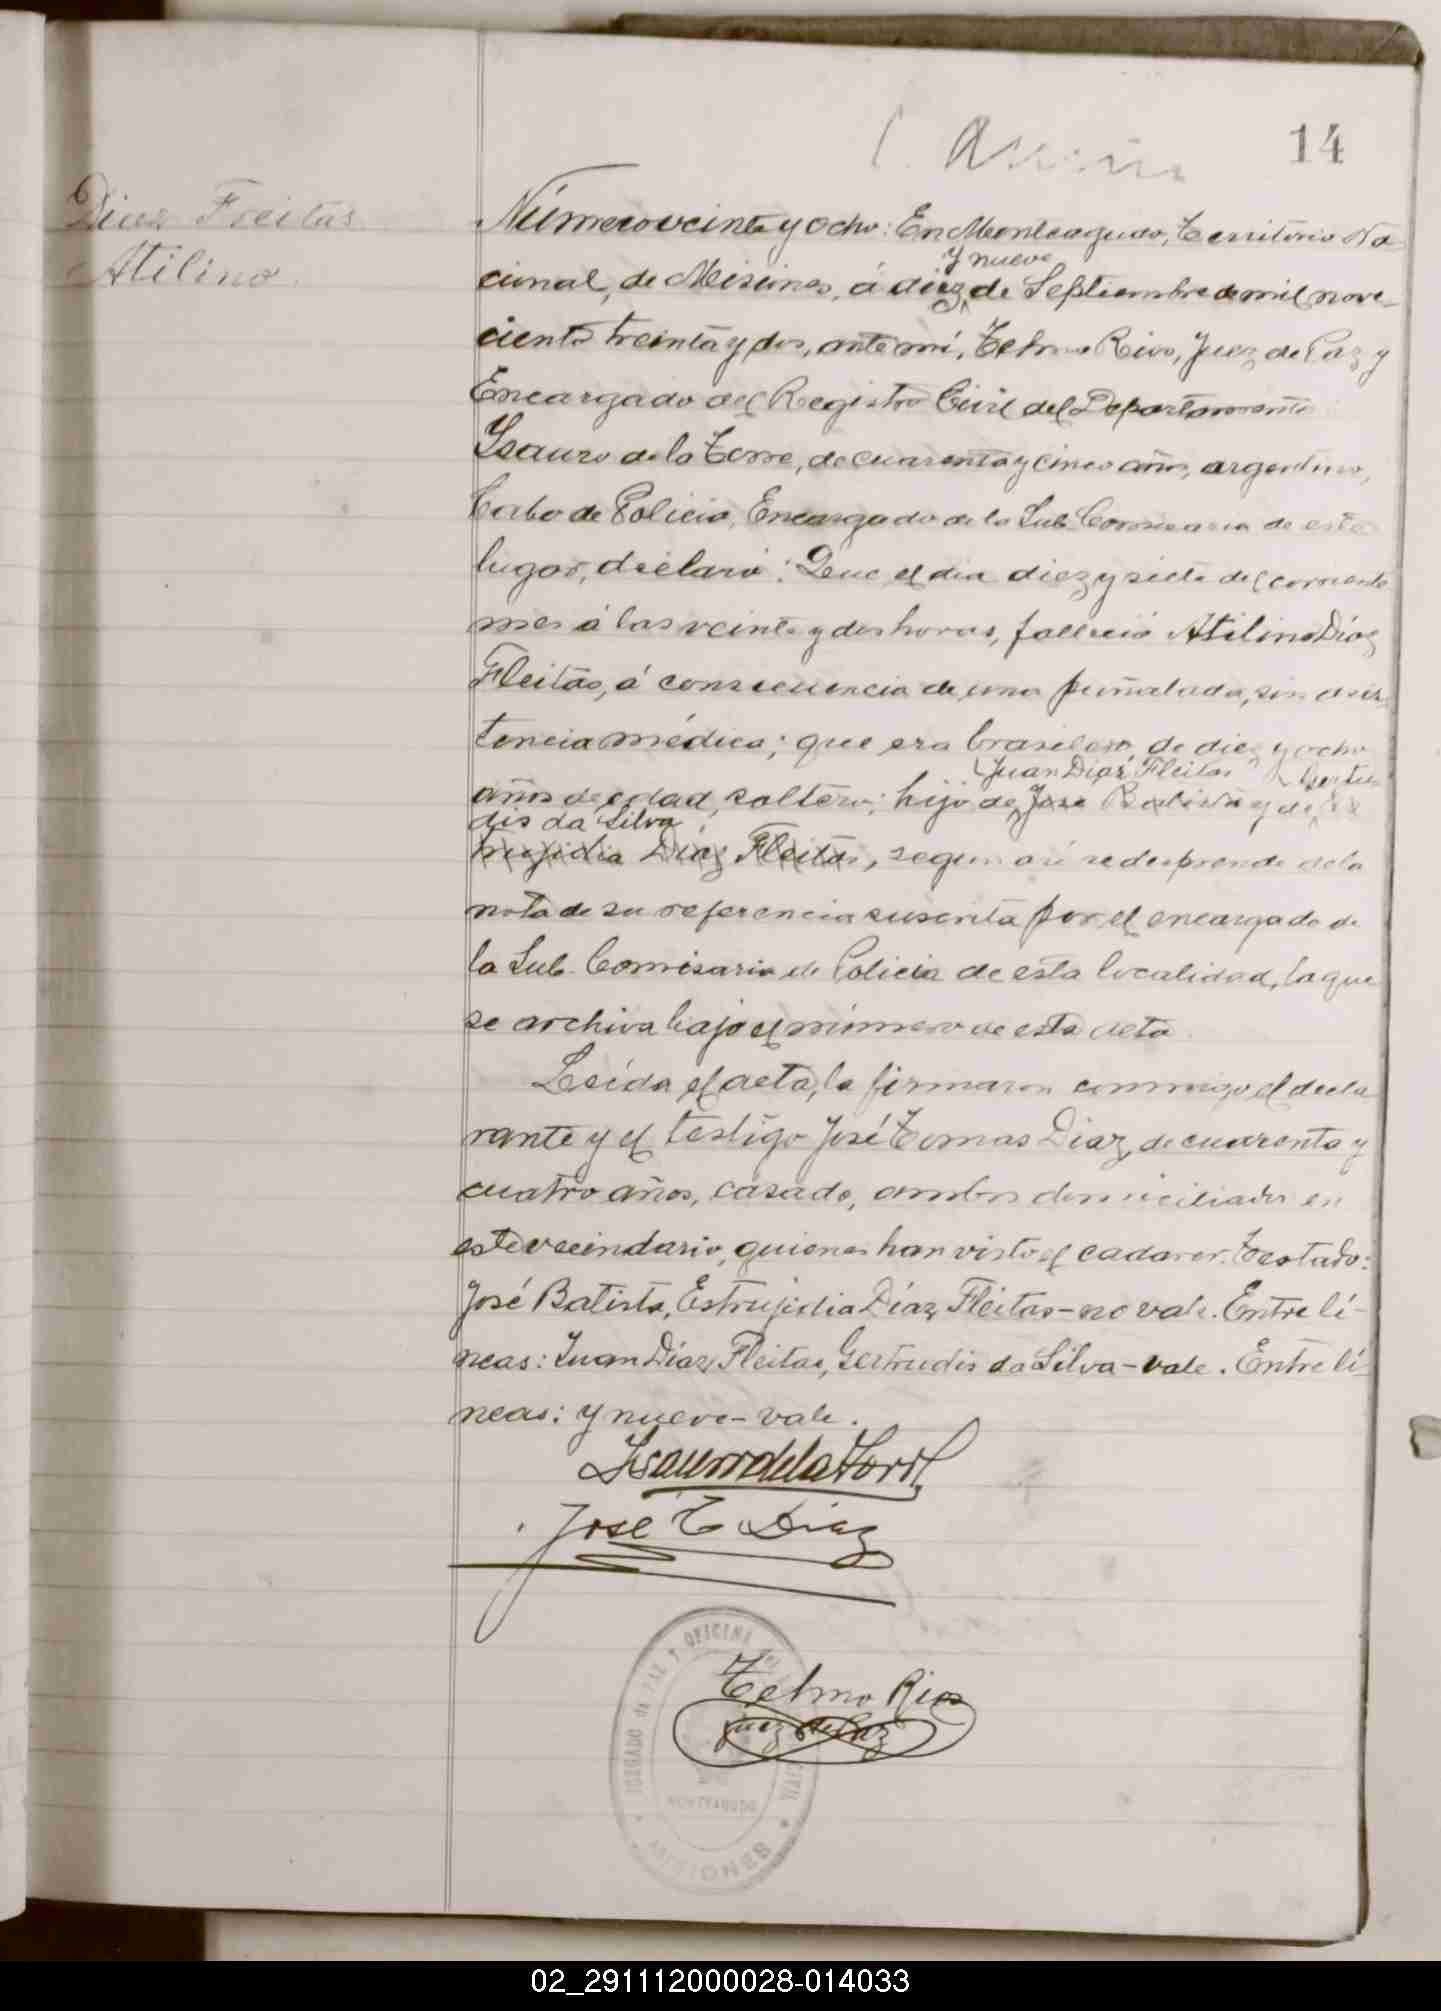 14
Diaz Freitas
Atilino.
Número veinte y ocho: En Monteagudo, Territorio Na-
y nueve
cional, de Misiones, á diez, de Septiembre de mil nove-
cientos treinta y dos, ante mí, Telmo Rios, Juez de Paz y
Encargado del Registro Civil del Departamento
Isauro de la Torre, de cuarenta y cinco años, argentino,
Cabo de Policia, Encargado de la Sub Comisaria de este
lugar, declaró: Que el dia diez y siete del corriente
mes á las veinte y dos horas, falleció Atilino Díaz
Fleitas, á consecuencia de una puñalada, sin asis-
tencia médica; que era brasilero, de diez y ocho
Juan Diaz Fleitas Gertru-
años de edad, soltero; hijo de José Batista y de Es
dis da Silva
trujidia Díaz Fleitas, segun asi se desprende de la
nota de su referencia suscrita por el encargado de
la Sub-Comisaria de Policia de esta localidad, la que
se archiva bajo el número de esta acta.
Leída el acta, la firmaron conmigo el decla-
rante y el testigo José Tomas Diaz, de cuarenta y
cuatro años, casado, ambos domiciliados en
este vecindario, quienes han visto el cadaver. Testado:
José Batista, Estrujidia Díaz Fleitas-no vale. Entre lí-
neas: Juan Díaz Fleitas, Gertrudis da Silva-vale. Entre lí-
neas: y nueve-vale.
Isauro de la Torre
José T Diaz
Telmo Rios
Juez de Paz
JUZGADO de PAZ Y OFICINA
MONTEAGUDO
MISIONES
02_291112000028-014033